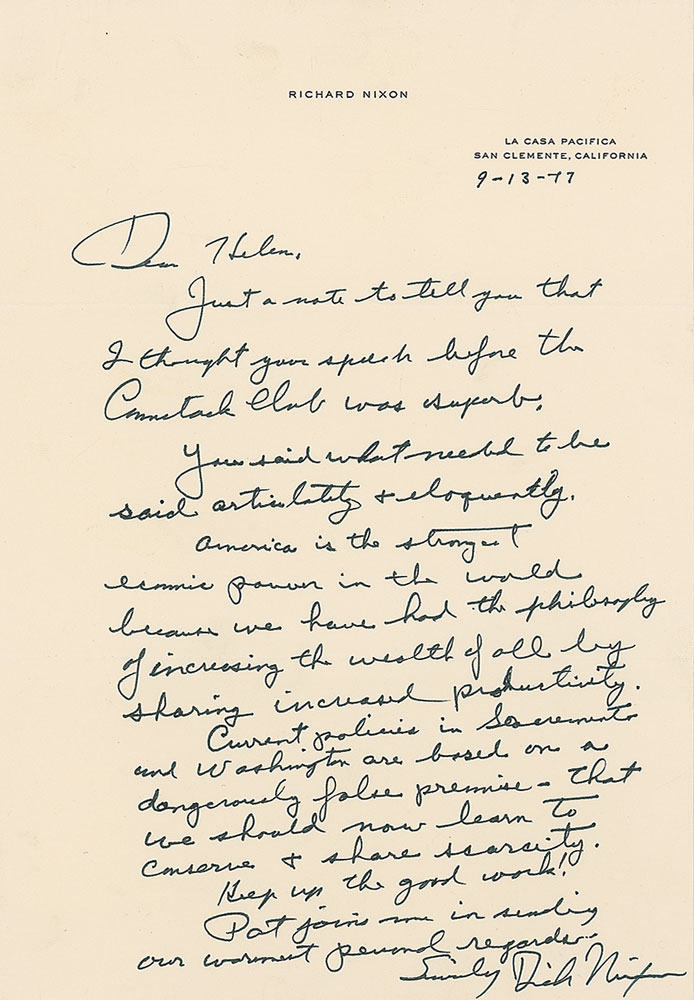 RICHARD NIXON
LA CASA PACIFICA
SAN CLEMENTE, CALIFORNIA
9-13-77
Dear Helen,
Just a note to tell you that
I thought your speech before the
Comstock Club was superb.
You said what needed to be
said articulately & eloquently.
America is the strongest
economic power in the world
because we have had the philosophy
of increasing the wealth of all by
sharing increased productivity.
Current policies in Sacramento
and Washington are based on a
dangerously false premise - that
we should now learn to
conserve & share scarcity.
Keep up the good work!
Pat joins me in sending
our warmest personal regards -
Sincerely Dick Nixon